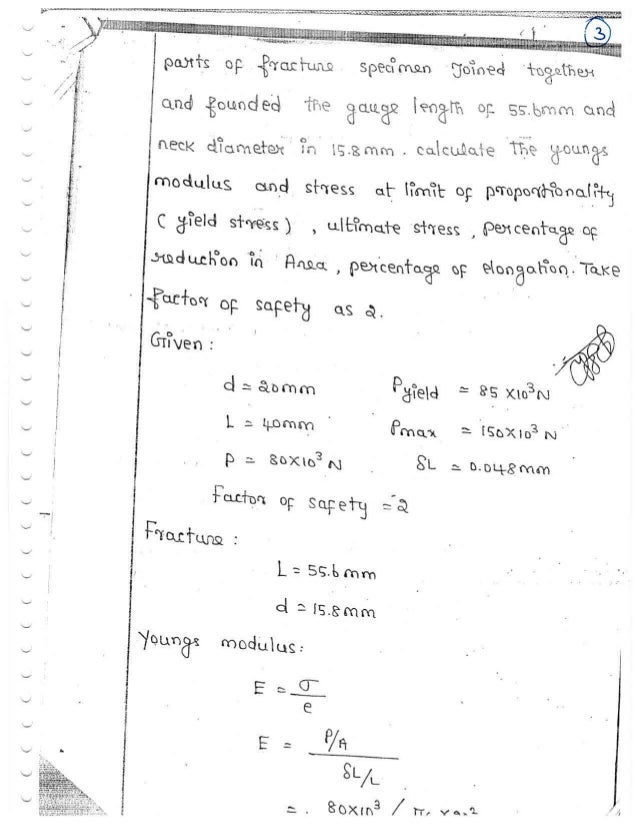 3
parts of fracture specimen Joined together
and founded the gauge length of 55.6mm and
neck diameter in 15.8 mm. calculate the youngs
modulus and stress at limit of proportionality
( yield stress ) , ultimate stress , percentage of
reduction in Area , percentage of elongation. Take
factor of safety as 2.
Given :
d = 20mm Pyield = 85 x10³N
L = 40mm Pmax = 150x10³ N
P = 80x10³ N δL = 0.048mm
factor of safety = 2
Fracture :
L = 55.6 mm
d = 15.8 mm
Youngs modulus:
E = σ / e
E = P/A / δL/L
= 80x10³ /